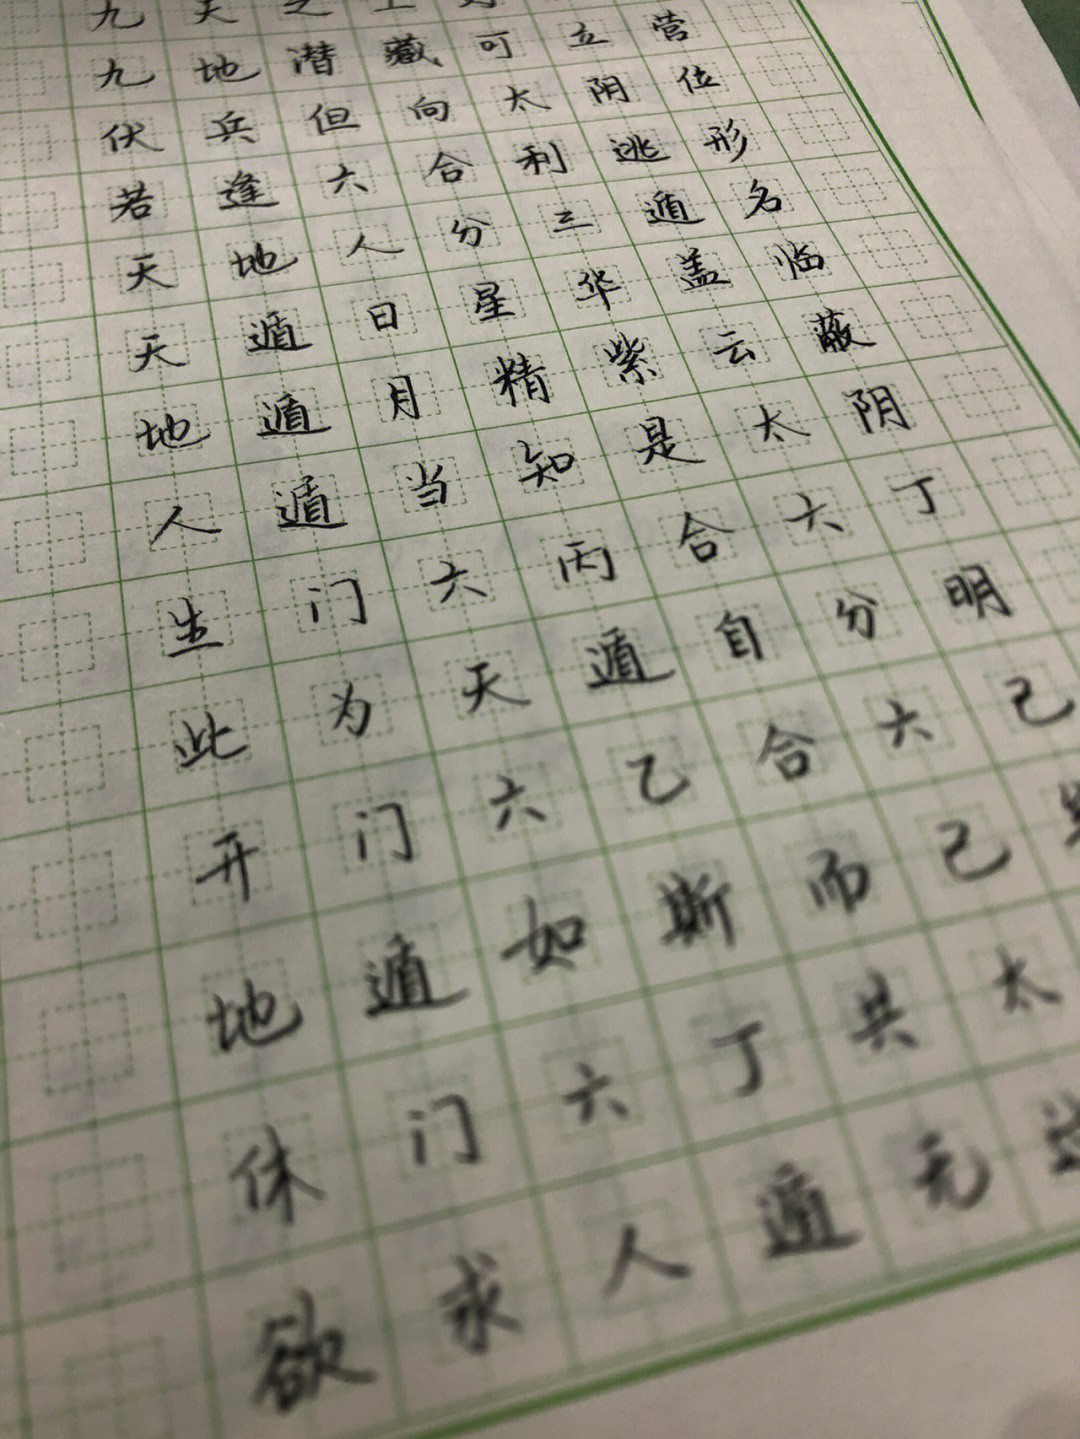 九天之上
九地潜藏可立营
伏兵但向太阴位
若逢六合利逃形
天地人分三遁名
天遁日星华盖临
地遁月精紫云蔽
人遁当知是太阴
生门六丙合六丁
此为天遁自分明
开门六乙合六己
地遁如斯而己
休门六丁共太
欲求人遁无